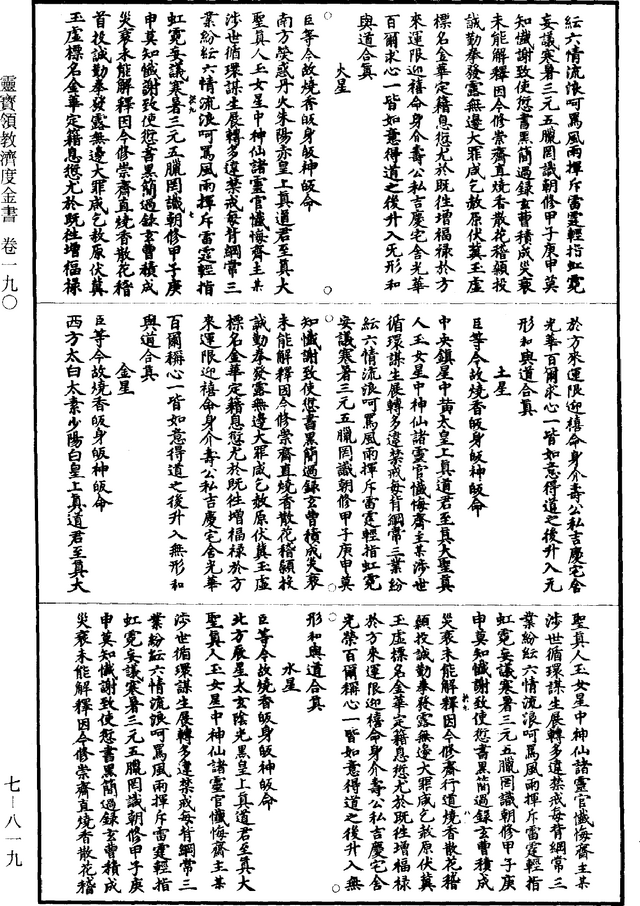 紜六情流浪呵罵風雨揮斥雷霆輕指虹霓
妄議寒暑三元五臘罔識朝修甲子庚申莫
知懺謝致使愆書黑簡過録玄曹積成災衰
未能解釋因今修崇齋直燒香散花稽顙投
誠勤奉發露無邊大罪咸乞赦原伏冀玉虛
標名金華定籍息愆尤於既往增福禄於方
來運限迎禧命身介壽公私吉慶宅舍光華
百爾求心一皆如意得道之後升入无形和
與道合真
火星
臣等今故燒香皈身皈神皈命
南方熒惑丹火朱陽赤皇上真道君至真大
聖真人玉女星中神仙諸靈官懺悔齋主某
涉世循環謀生展轉多違禁戒每背綱常三
業紛紜六情流浪呵罵風雨揮斥雷霆輕指
虹霓妄議寒暑三元五臘罔識朝修甲子庚
申莫知懺謝致使愆書黑簡過録玄曹積成
災衰未能解釋因今修崇齋直燒香散花稽
首投誠勤奉發露無邊大罪咸乞赦原伏冀
玉虛標名金華定籍息愆尤於既往增福禄
於方來運限迎禧命身介壽公私吉慶宅舍
光華百爾求心一皆如意得道之後升入无
形和與道合真
土星
臣等今故燒香皈身皈神皈命
中央鎮星中黄太皇上真道君至真大聖真
人玉女星中神仙諸靈官懺悔齋主某涉世
循環謀生展轉多違禁戒每背綱常三業紛
紜六情流浪呵罵風雨揮斥雷霆輕指虹霓
妄議寒暑三元五臘罔識朝修甲子庚申莫
知懺謝致使愆書黑簡過録玄曹積成災衰
未能解釋因今修崇齋直燒香散花稽顙投
誠勤奉發露無邊大罪咸乞赦原伏冀玉虛
標名金華定籍息愆尤於既往增福禄於方
來運限迎禧命身介壽公私吉慶宅舍光華
百爾稱心一皆如意得道之後升入無形和
與道合真
金星
臣等今故燒香皈身皈神皈命
西方太白太素少陽白皇上真道君至真大
聖真人玉女星中神仙諸靈官懺悔齋主某
涉世循環謀生展轉多違禁戒每背綱常三
業紛紜六情流浪呵罵風雨揮斥雷霆輕指
虹霓妄議寒暑三元五臘罔識朝修甲子庚
申莫知懺謝致使愆書黑簡過録玄曹積成
災衰未能解釋因今修齋行道燒香散花稽
顙投誠勤奉發露無邊大罪咸乞赦原伏冀
玉虛標名金華定籍息愆尤於既往增福禄
於方來運限迎禧命身介壽公私吉慶宅舍
光榮百爾稱心一皆如意得道之後升入無
形和與道合真
水星
臣等今故燒香皈身皈神皈命
北方辰星太玄陰光黑皇上真道君至真大
聖真人玉女星中神仙諸靈官懺悔齋主某
涉世循環謀生展轉多違禁戒每背綱常三
業紛紜六情流浪呵罵風雨揮斥雷霆輕指
虹霓妄議寒暑三元五臘罔識朝修甲子庚
申莫知懺謝致使愆書黑簡過録玄曹積成
災衰未能解釋因今修崇齋直燒香散花稽
靈寶領教濟度金書 卷一九〇
七—八一九